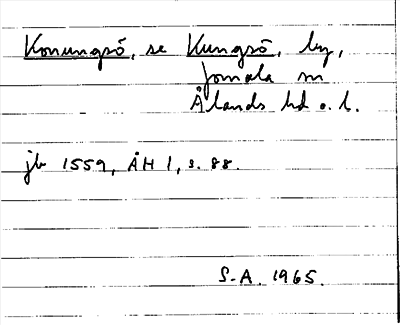 Konungsö, se Kungsö, by,
Jomala sn
Ålands hd o. l.
jb 1559, ÅH 1, s. 88.
S-A. 1965.